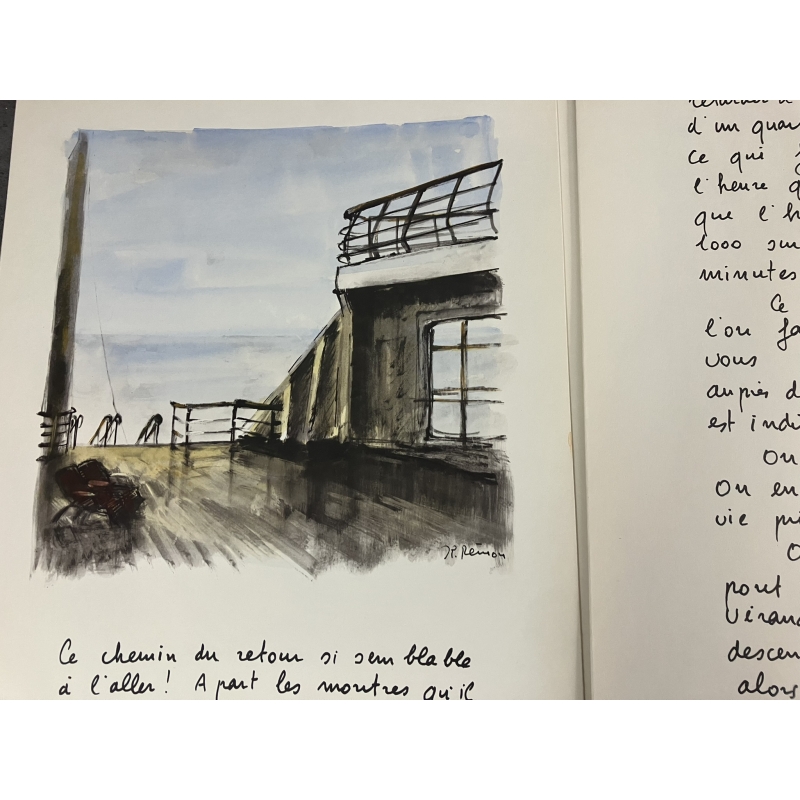 J.P. Rémon
Ce chemin du retour si semblable
à l'aller ! A part les montres qu'il
d'un quar
ce qui
l'heure
que l'h
1000 su
minutes
Ce
l'on fa
vous
auprès d
est indi
On
On en
vie pri
O
pont
véran
descen
alors